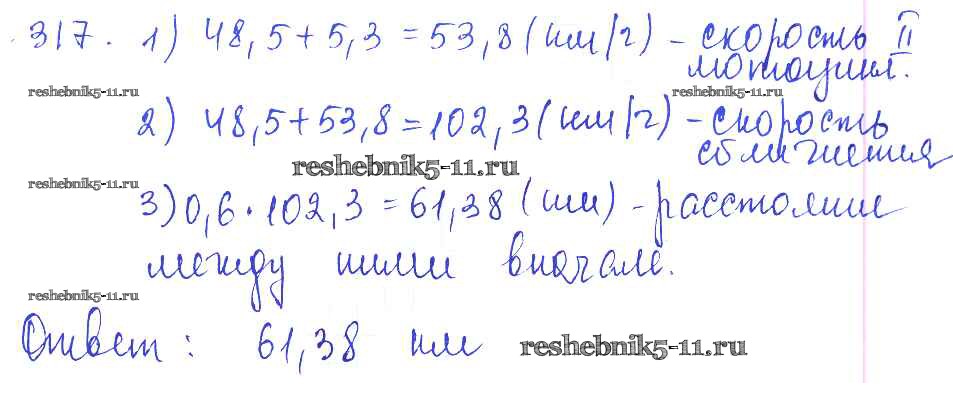 317. 1) 48,5 + 5,3 = 53,8 (км/ч) - скорость II
мотоцикл.
reshebnik5-11.ru reshebnik5-11.ru
2) 48,5 + 53,8 = 102,3 (км/ч) - скорость
сближения
reshebnik5-11.ru
reshebnik5-11.ru
3) 0,6 · 102,3 = 61,38 (км) - расстояние
между ними вначале.
reshebnik5-11.ru
Ответ: 61,38 км
reshebnik5-11.ru